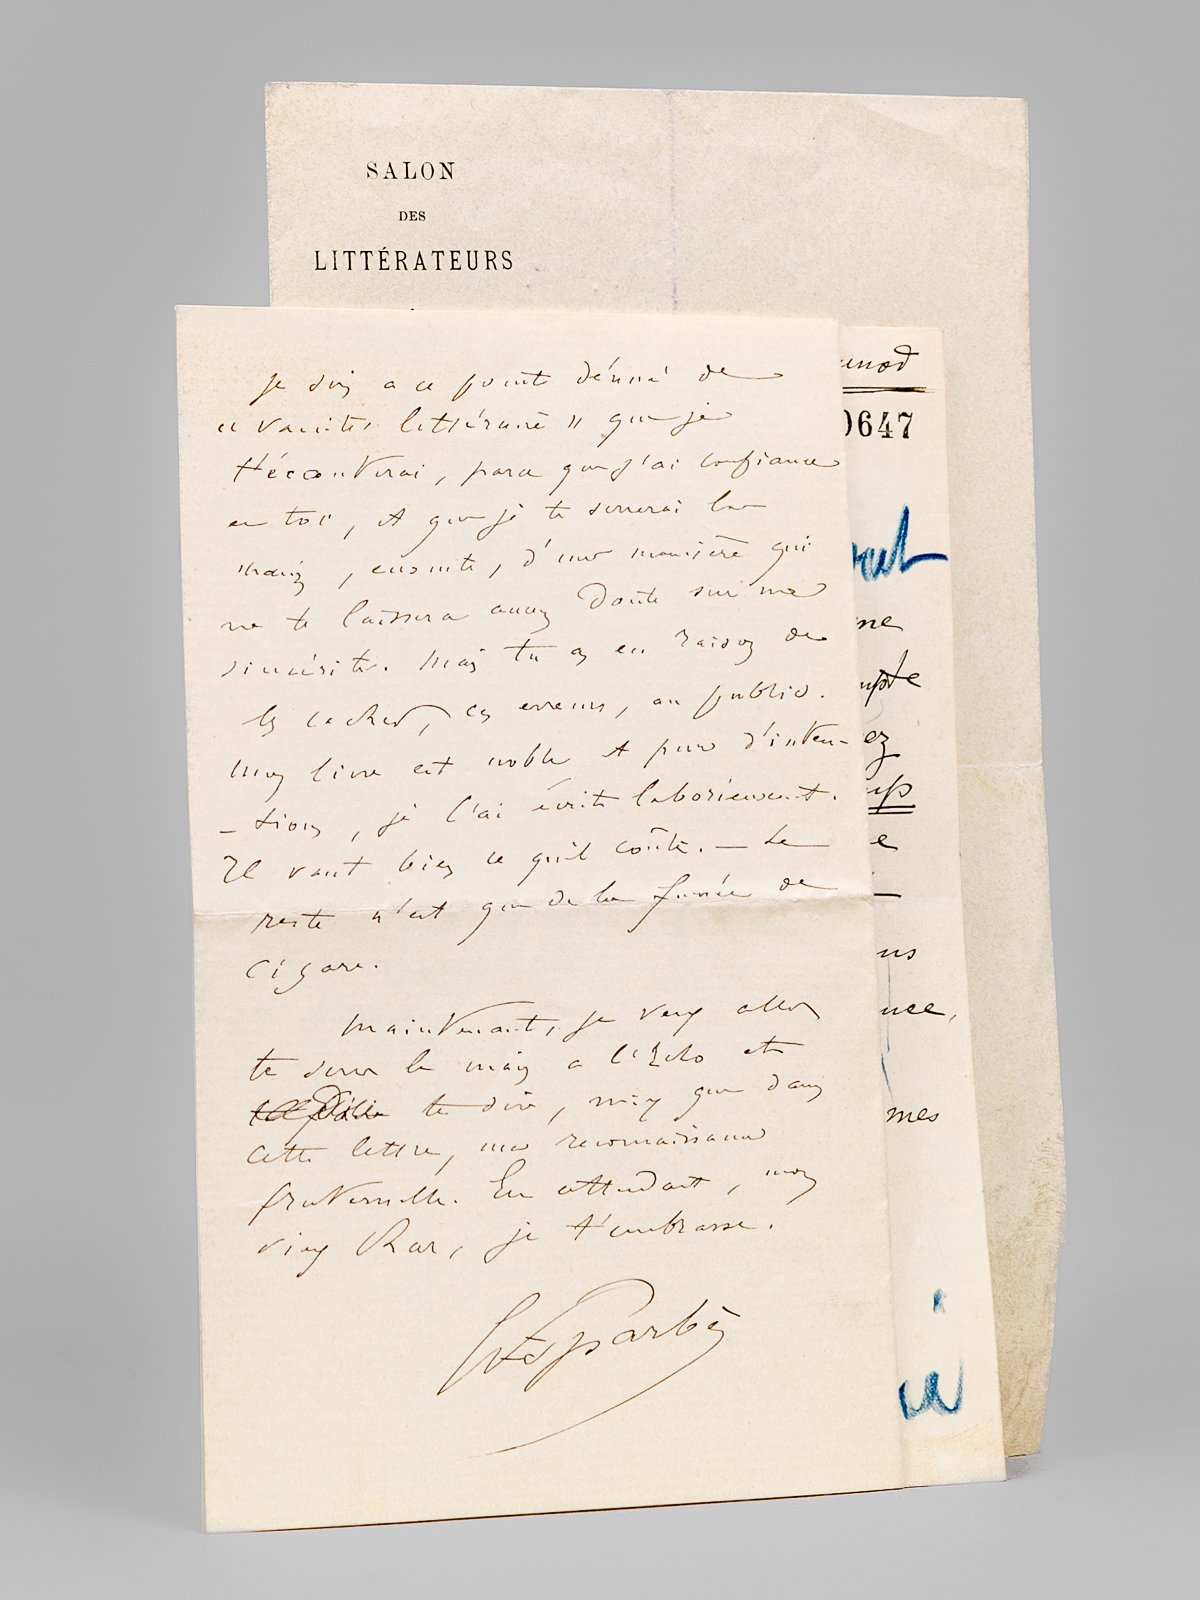 SALON
DES
LITTÉRATEURS
Je suis à ce point dénué de
« vanité littéraire » que je
t'écouterai, parce que j'ai confiance
en toi, et que je te serrerai la
main, ensuite, d'une manière qui
ne te laissera aucun doute sur ma
sincérité. Mais tu as eu raison de
les cacher, ces erreurs, au public.
Mon livre est noble et pur d'inten-
-tion, je l'ai écrit laborieusement.
Il vaut bien ce qu'il coûte. — Le
reste n'est que de la fumée de
cigare.
Maintenant, je veux aller
te serrer la main à l'Echo et
te dire, mieux que dans
cette lettre, ma reconnaissance
fraternelle. En attendant, mon
vieux, je t'embrasse.
d'Esparbès
unod
0647
me
ez
e
us
nce,
mes